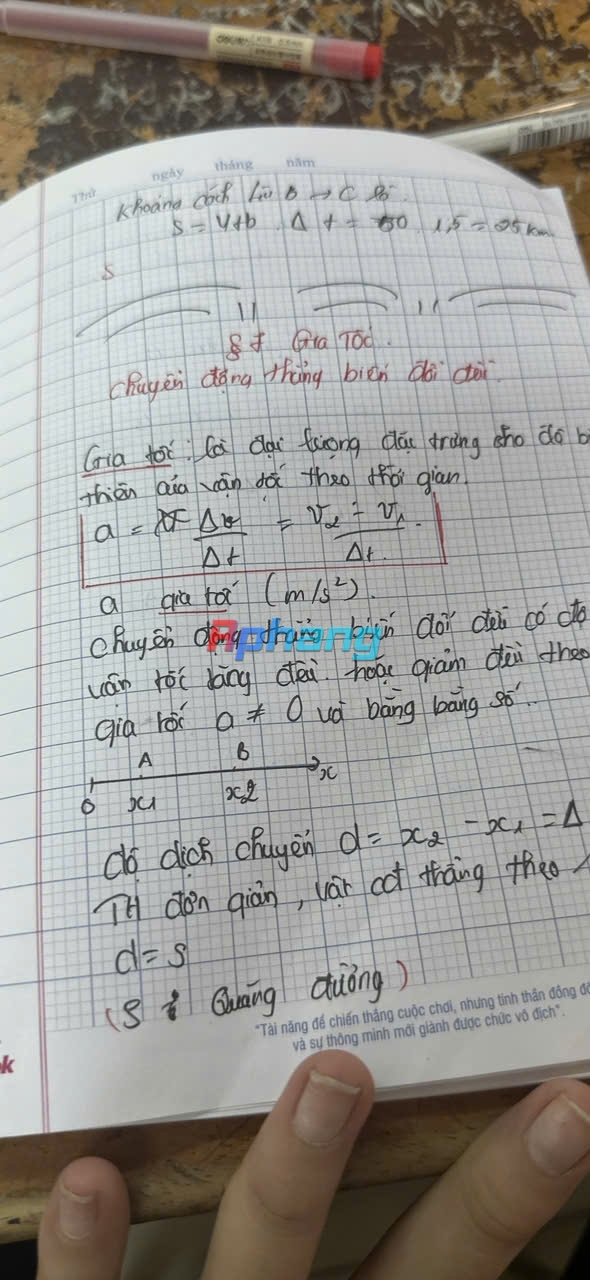 Thứ ngày tháng năm
Khoảng cách từ B → C là:
S = Vtb . Δt = 50 . 1,5 = 95 km
S
§ 7 Gia Tốc.
Chuyển động thẳng biến đổi đều.
Gia tốc: là đại lượng đặc trưng cho độ bi
thiên của vận tốc theo thời gian.
a = Δv / Δt = V2 - V1 / Δt.
a gia tốc (m/s²).
Chuyển động thẳng biến đổi đều có độ
vận tốc tăng đều hoặc giảm đều theo
gia tốc a ≠ 0 và bằng hằng số.
A B
0 x1 x2 x
độ dịch chuyển d = x2 - x1 = Δ
TH đơn giản, vật cđ thẳng theo 1
d = s
(S : Quãng đường)
"Tài năng để chiến thắng cuộc chơi, nhưng tinh thần đồng độ
và sự thông minh mới giành được chức vô địch".
k